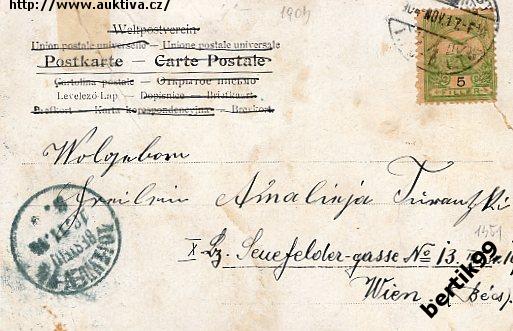 http://www.auktiva.cz/
1904
Weltpostverein
Union postale universelle – Unione postale universale
Postkarte – Carte Postale
Cartolina postale – Открытое письмо
Levelező-Lap – Dopisnice – Briefkaart
Brefkort – Karta korespondencyjna – Brevkort
904 NOV. 17
5
FILLÉR
Wolgeborn
Freilein Amalinja Turantzki
X. Bz. Senefelder-gasse No 13.
Wien (Bécs).
WIEN
bertik99